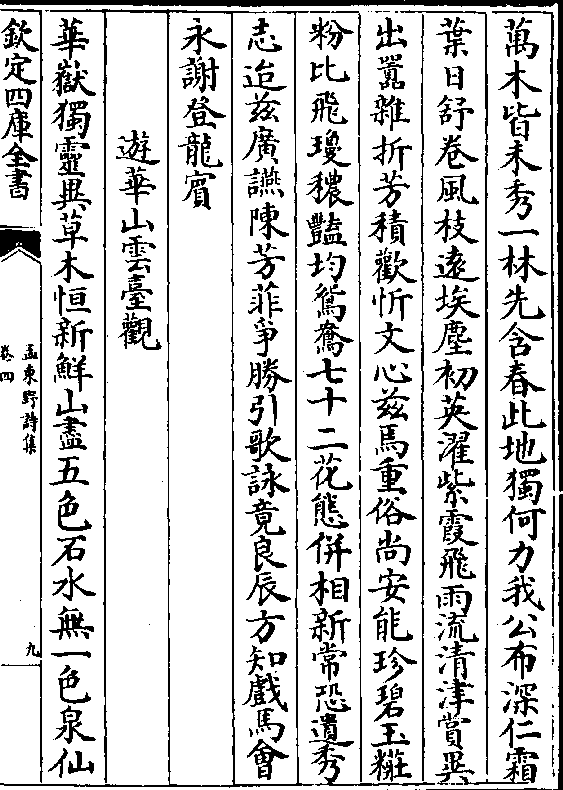 萬木皆未秀一林先含春此地獨何力我公布深仁霜
葉日舒卷風枝遠埃塵初英濯紫霞飛雨流清津賞異
出囂雜折芳積歡忻文心兹焉重俗尚安能珍碧玉粧
粉比飛瓊穠豔均鴛鴦七十二花態併相新常恐遺秀
志迨兹廣讌陳芳菲爭勝引歌詠竟良辰方知戲馬會
永謝登龍賓
遊華山雲臺觀
華嶽獨靈異草木恒新鮮山盡五色石水無一色泉仙
欽定四庫全書
孟東野詩集
卷四
九